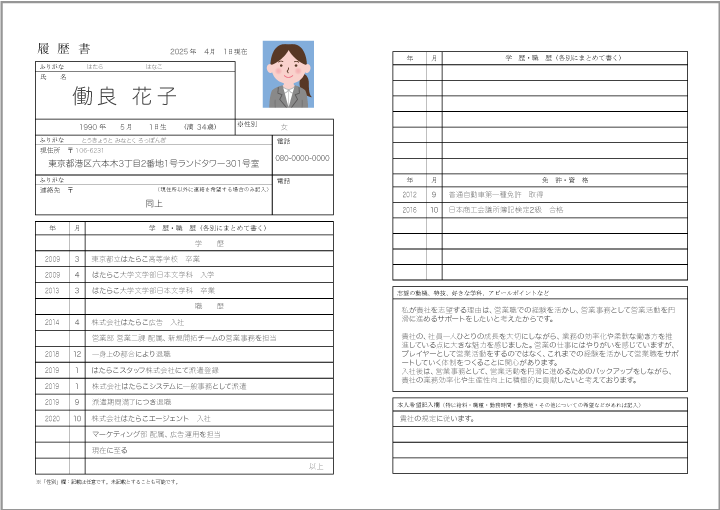 履歴書
2025年 4月 1日現在
ふりがな はたら はなこ
氏 名
働良 花子
1990年 5月 1日生 (満 34歳)
※性別 女
ふりがな とうきょうと みなとく ろっぽんぎ
現住所 〒106-6231
東京都港区六本木3丁目2番地1号ランドタワー301号室
電話
080-0000-0000
ふりがな
連絡先 〒 (現住所以外に連絡を希望する場合のみ記入)
同上
電話
年 月 学 歴・職 歴(各別にまとめて書く)
学 歴
2009 3 東京都立はたらこ高等学校 卒業
2009 4 はたらこ大学文学部日本文学科 入学
2013 3 はたらこ大学文学部日本文学科 卒業
職 歴
2014 4 株式会社はたらこ広告 入社
営業部 営業二課 配属、新規開拓チームの営業事務を担当
2018 12 一身上の都合により退職
2019 1 はたらこスタッフ株式会社にて派遣登録
2019 1 株式会社はたらこシステムに一般事務として派遣
2019 9 派遣期間満了につき退職
2020 10 株式会社はたらこエージェント 入社
マーケティング部 配属、広告運用を担当
現在に至る
以上
※「性別」欄：記載は任意です。未記載とすることも可能です。
年 月 学 歴・職 歴(各別にまとめて書く)
年 月 免 許・資 格
2012 9 普通自動車第一種免許 取得
2016 10 日本商工会議所簿記検定2級 合格
志望の動機、特技、好きな学科、アピールポイントなど
私が貴社を志望する理由は、営業職での経験を活かし、営業事務として営業活動を円
滑に進めるサポートをしたいと考えたからです。
貴社の、社員一人ひとりの成長を大切にしながら、業務の効率化や柔軟な働き方を推
進している点に大きな魅力を感じました。営業の仕事にはやりがいを感じていますが、
プレイヤーとして営業活動をするのではなく、これまでの経験を活かして営業職をサポ
ートしていく体制をつくることに関心があります。
入社後は、営業事務として、営業活動を円滑に進めるためのバックアップをしながら、
貴社の業務効率化や生産性向上に積極的に貢献したいと考えております。
本人希望記入欄(特に給料・職種・勤務時間・勤務地・その他についての希望などがあれば記入)
貴社の規定に従います。